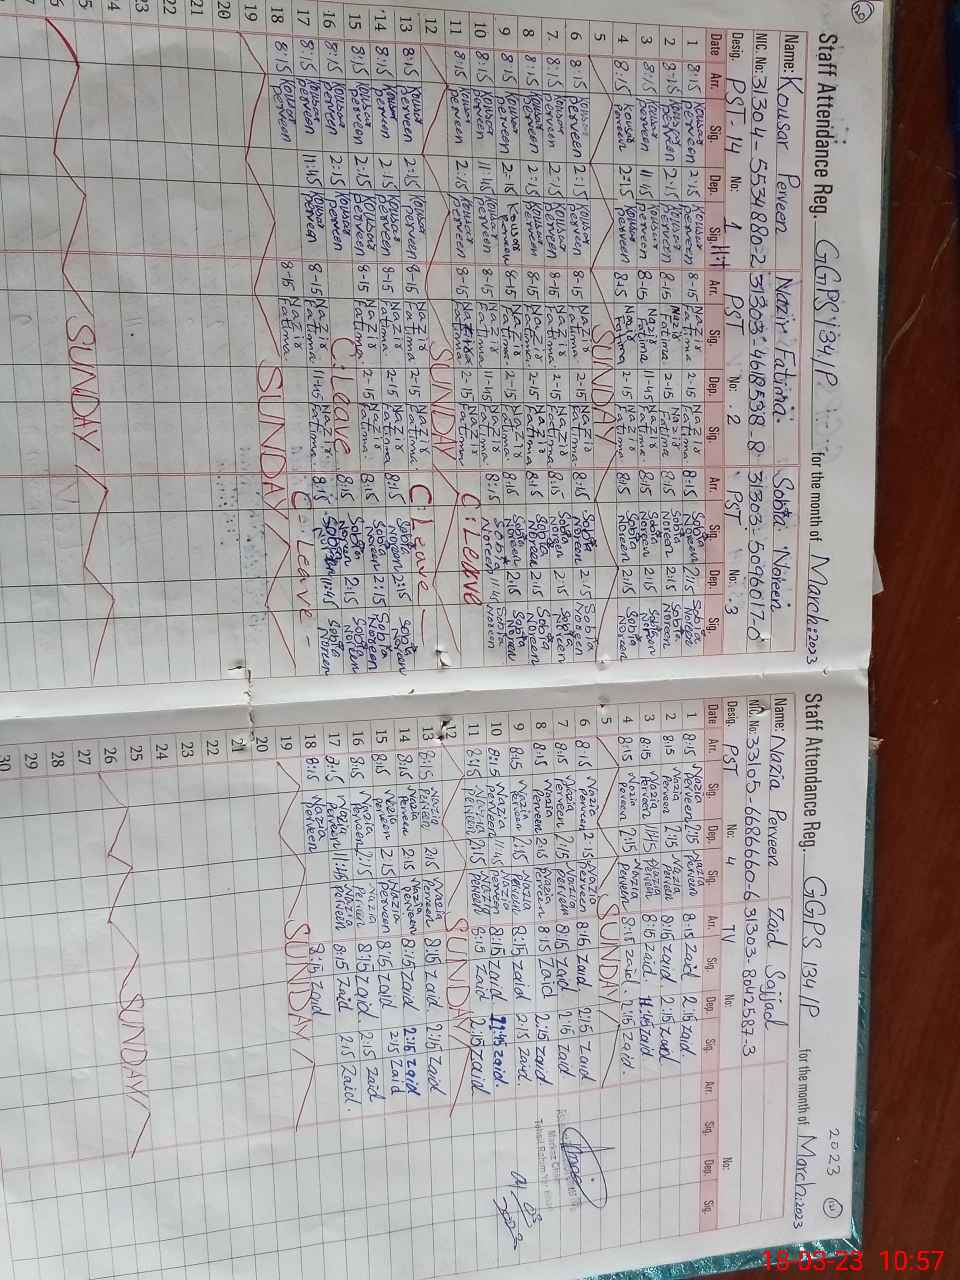 20
Staff Attendance Reg. GGPS 134/P for the month of March:2023
Name: Kousar Perveen Nazir Fatima. Sobia Noreen
NIC. No: 31304-5534880-2 31303-4618538-8 31303-5096017-0
Desig. PST-14 No: 1 PST No: 2 PST No: 3
Date Arr. Sig. Dep. Sig. Arr. Sig. Dep. Sig. Arr. Sig. Dep. Sig.
1 8:15 Kousar Perveen 2:15 Kousar Perveen 8-15 Nazir Fatima 2-15 Nazir Fatima 8:15 Sobia Noreen 2:15 Sobia Noreen
2 8:15 Kousar Perveen 2:15 Kousar Perveen 8-15 Nazir Fatima 2-15 Nazir Fatima 8:15 Sobia Noreen 2:15 Sobia Noreen
3 8:15 Kousar Perveen 11:45 Kousar Perveen 8-15 Nazir Fatima 11-45 Nazir Fatima 8:15 Sobia Noreen 2:15 Sobia Noreen
4 8:15 Kousar Perveen 2:15 Kousar Perveen 8-15 Nazir Fatima 2-15 Nazir Fatima 8:15 Sobia Noreen 2:15 Sobia Noreen
5 SUNDAY
6 8:15 Kousar Perveen 2:15 Kousar Perveen 8-15 Nazir Fatima 2-15 Nazir Fatima 8:15 Sobia Noreen 2:15 Sobia Noreen
7 8:15 Kousar Perveen 2:15 Kousar Perveen 8-15 Nazir Fatima 2-15 Nazir Fatima 8:15 Sobia Noreen 2:15 Sobia Noreen
8 8:15 Kousar Perveen 2:15 Kousar Perveen 8-15 Nazir Fatima 2-15 Nazir Fatima 8:15 Sobia Noreen 2:15 Sobia Noreen
9 8:15 Kousar Perveen 2:15 Kousar Perveen 8-15 Nazir Fatima 2-15 Nazir Fatima 8:15 Sobia Noreen 2:15 Sobia Noreen
10 8:15 Kousar Perveen 11:45 Kousar Perveen 8-15 Nazir Fatima 11-45 Nazir Fatima 8:15 Sobia Noreen 11:45 Sobia Noreen
11 8:15 Kousar Perveen 2:15 Kousar Perveen 8-15 Nazir Fatima 2-15 Nazir Fatima C:Leave
12 SUNDAY
13 8:15 Kousar Perveen 2:15 Kousar Perveen 8-15 Nazir Fatima 2-15 Nazir Fatima C:Leave
14 8:15 Kousar Perveen 2:15 Kousar Perveen 8-15 Nazir Fatima 2-15 Nazir Fatima 8:15 Sobia Noreen 2:15 Sobia Noreen
15 8:15 Kousar Perveen 2:15 Kousar Perveen 8-15 Nazir Fatima 2-15 Nazir Fatima 8:15 Sobia Noreen 2:15 Sobia Noreen
16 8:15 Kousar Perveen 2:15 Kousar Perveen C:Leave 8:15 Sobia Noreen 2:15 Sobia Noreen
17 8:15 Kousar Perveen 11:45 Kousar Perveen 8-15 Nazir Fatima 11-45 Nazir Fatima 8:15 Sobia Noreen 11:45 Sobia Noreen
18 8:15 Kousar Perveen 8-15 Nazir Fatima C: Leave
19 SUNDAY
20
21
22
23
24
25
26 SUNDAY
27
2023
Staff Attendance Reg. GGPS 134/P for the month of March:2023
Name: Nazia Perveen Zaid Sajjad
NIC. No: 33105-6686660-6 31303-8042587-3
Desig. PST No: 4 TV No: No:
Date Arr. Sig. Dep. Sig. Arr. Sig. Dep. Sig. Arr. Sig. Dep. Sig.
1 8:15 Nazia Perveen 2:15 Nazia Perveen 8:15 Zaid 2:15 Zaid.
2 8:15 Nazia Perveen 2:15 Nazia Perveen 8:15 Zaid. 2:15 Zaid
3 8:15 Nazia Perveen 11:45 Nazia Perveen 8:15 Zaid. 11:45 Zaid
4 8:15 Nazia Perveen 2:15 Nazia Perveen 8:15 Zaid. 2:15 Zaid.
5 SUNDAY
6 8:15 Nazia Perveen 2:15 Nazia Perveen 8:15 Zaid. 2:15 Zaid
7 8:15 Nazia Perveen 2:15 Nazia Perveen 8:15 Zaid 2:15 Zaid
8 8:15 Nazia Perveen 2:15 Nazia Perveen 8:15 Zaid 2:15 Zaid
9 8:15 Nazia Perveen 2:15 Nazia Perveen 8:15 Zaid 2:15 Zaid.
10 8:15 Nazia Perveen 11:45 Nazia Perveen 8:15 Zaid 11:45 Zaid.
11 8:15 Nazia Perveen 2:15 Nazia Perveen 8:15 Zaid 2:15 Zaid
12 SUNDAY
13 8:15 Nazia Perveen 2:15 Nazia Perveen 8:15 Zaid. 2:15 Zaid
14 8:15 Nazia Perveen 2:15 Nazia Perveen 8:15 Zaid 2:15 Zaid
15 8:15 Nazia Perveen 2:15 Nazia Perveen 8:15 Zaid. 2:15 Zaid
16 8:15 Nazia Perveen 2:15 Nazia Perveen 8:15 Zaid. 2:15 Zaid
17 8:15 Nazia Perveen 11:45 Nazia Perveen 8:15 Zaid 2:15 Zaid.
18 8:15 Nazia Perveen 8:15 Zaid
19 SUNDAY
20
21
22
23
24
25
26 SUNDAY
27
28
29
30
18-03-23 10:57